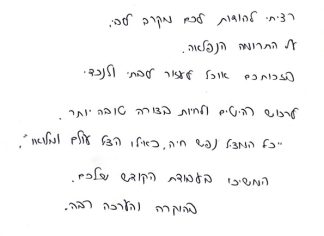 רציתי להודות לכם מקרב לבי,
על התרומה הנפלאה.
בזכותכם אוכל לעזור לבתי ולנכדי
לרכוש רהיטים ולחיות בצורה טובה יותר.
"כל המציל נפש חיה, כאילו הציל עולם ומלואו".
המשיכו בעבודת הקודש שלכם.
בהוקרה והערכה רבה.